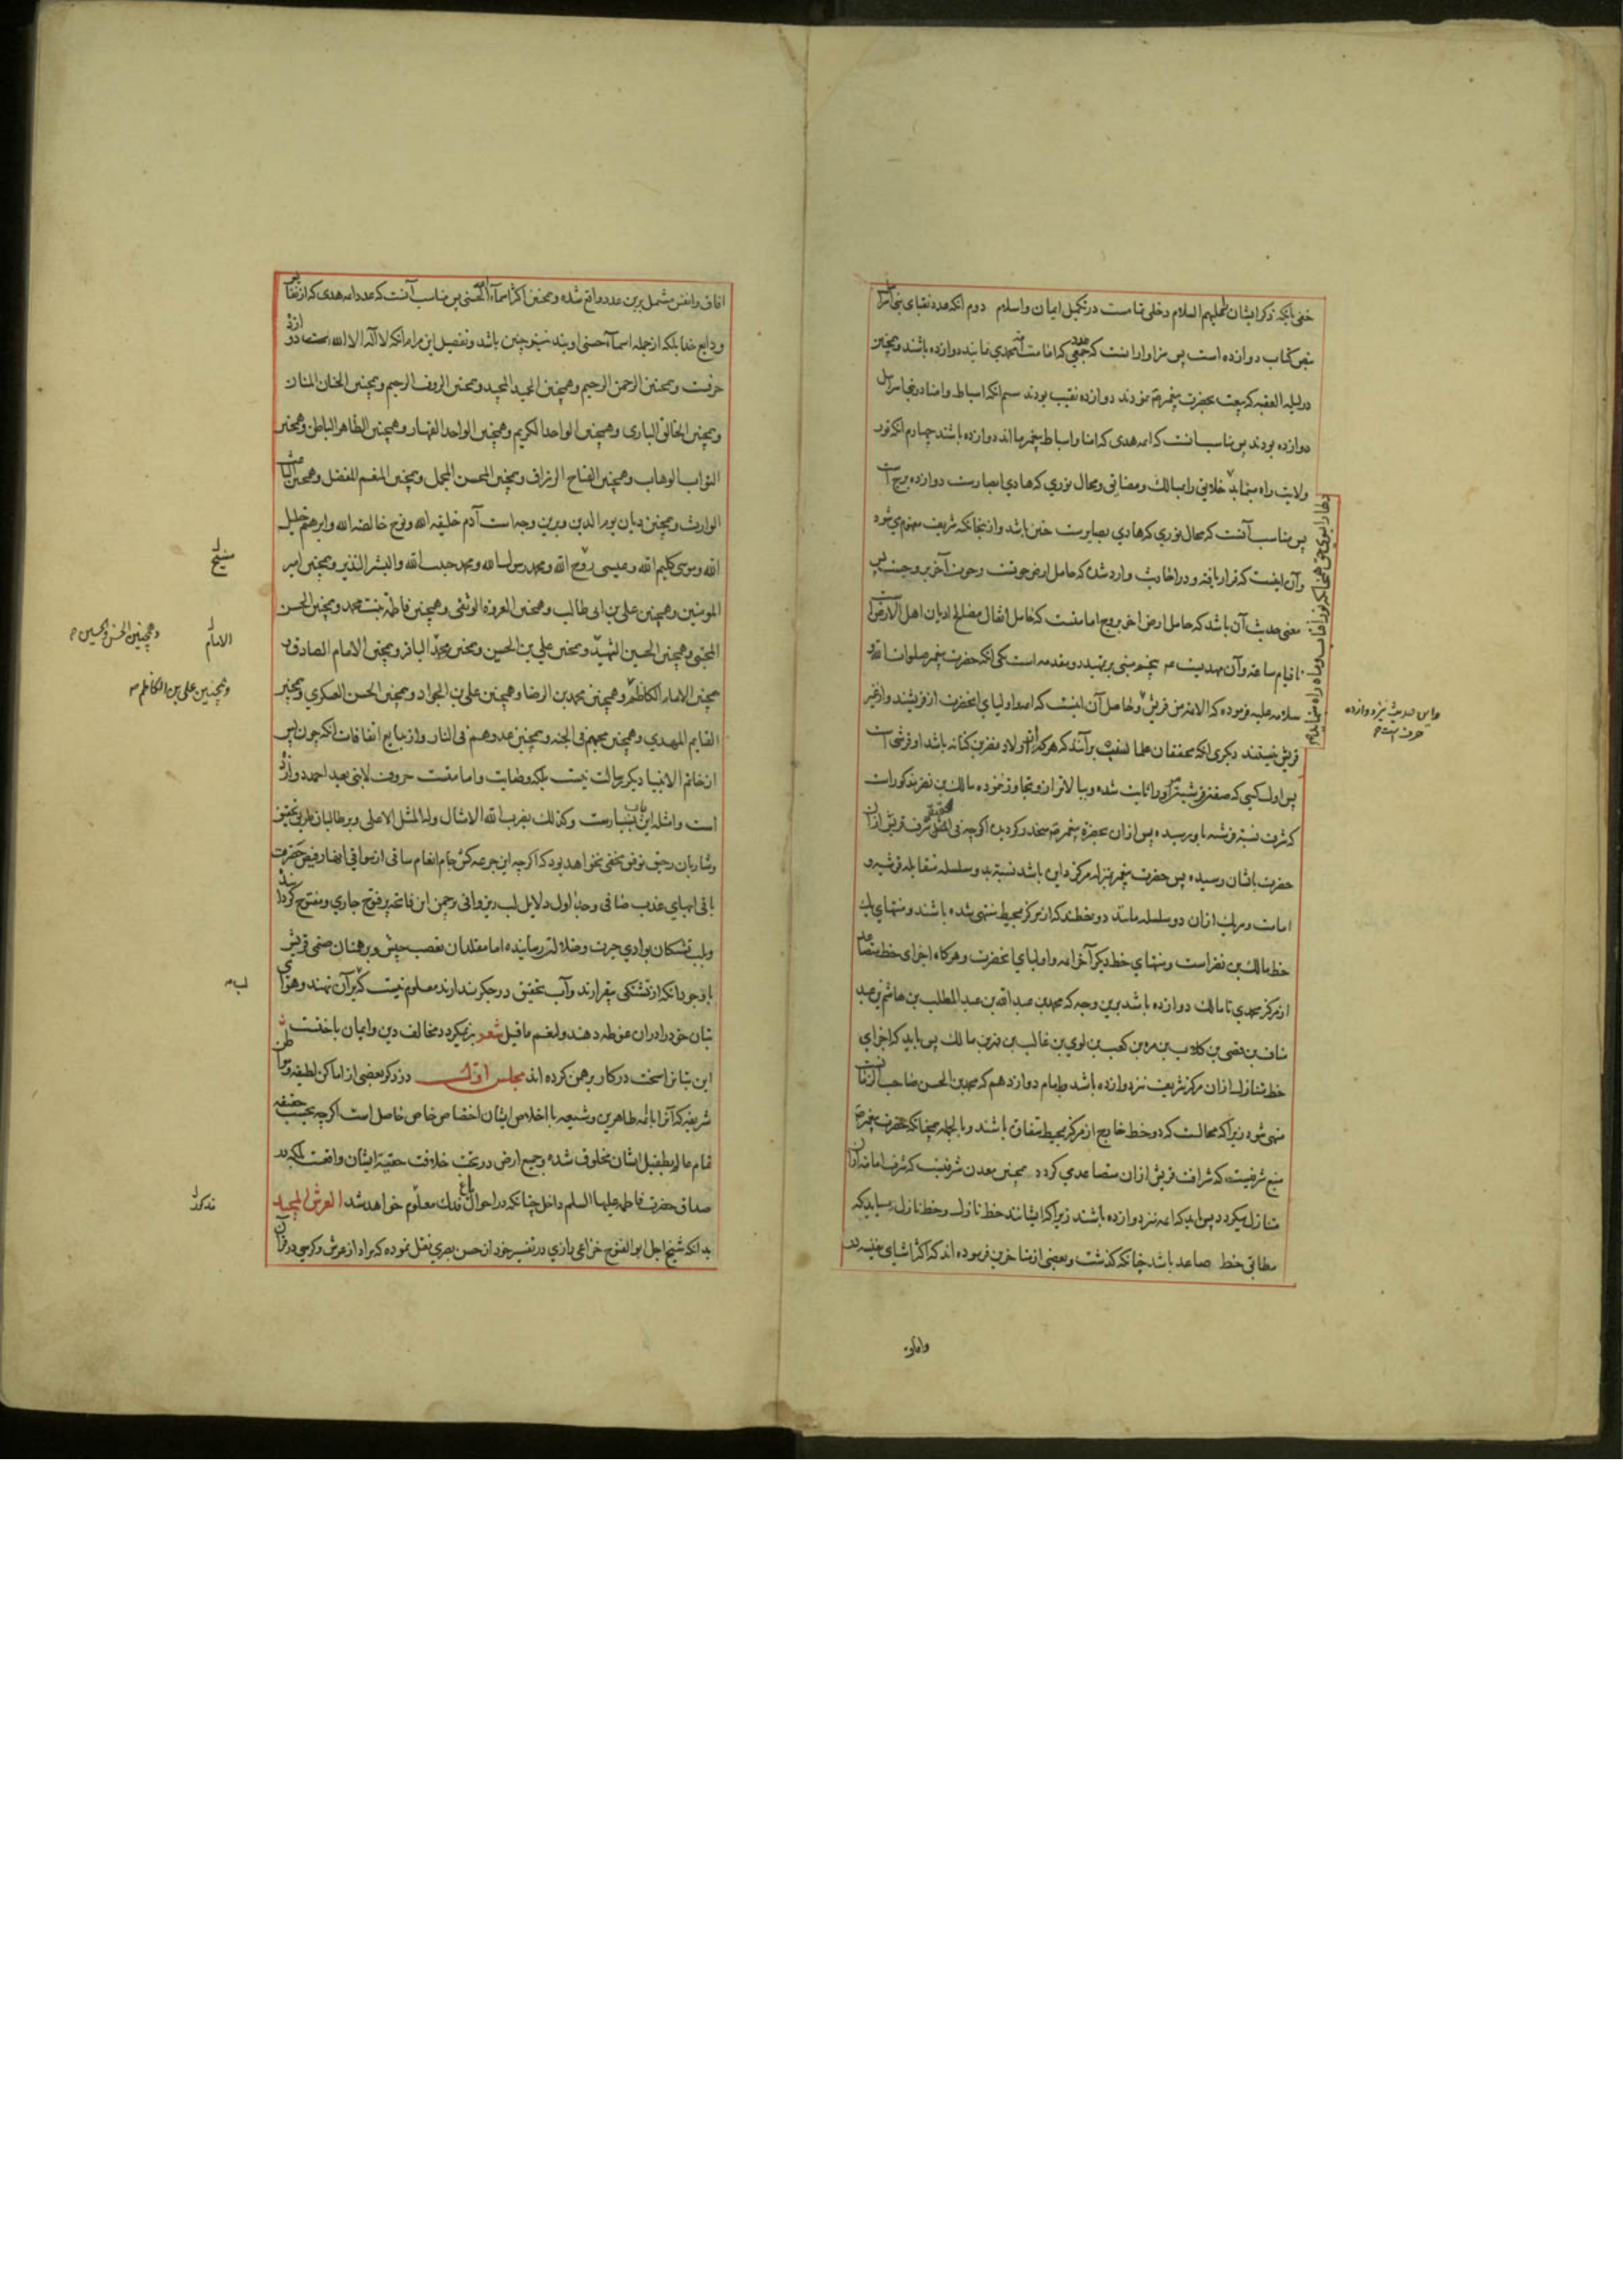 خفی بلکه ذکر ایشان علیهم السلام دخلی تمامست در تکمیل ایمان و اسلام دوم انکه عدد نقبای بنی اسرائیل
بنص کتاب دوازده است پس سزاوار انست که عدد جمعی که امامت امت محمدی نمایند دوازده باشند و همچنین
در لیلة العقبه که بیعت بحضرت پیغمبر نمودند دوازده نقیب بودند سیم انکه اسباط و امنا در بنی اسرائیل
دوازده بودند پس مناسب انست که ائمه هدی که امنا و اسباط پیغمبر ما اند دوازده باشند چهارم انکه نور
ولایت راه مینماید خلایق را بمسالک و مضائق و محال نوری که هادی ابصارست دوازده برج است
پس مناسب آنست که محال نوری که هادی بصایرست چنین باشد و از اینجا نکته شریف مفهوم می شود
و آن اینست که قرار یافته و در احادیث وارد شده که حامل ارض حوتست و حوت آخر بروجست پس
معنی حدیث آن باشد که حامل ارض اخر بروج امامتست که حامل اثقال مصالح ادیان اهل الارض است
تا قیام ساعه و آن مهدیست پنجم مبنی بر تمهید دو مقدمه است یکی انکه حضرت پیغمبر صلوات الله و
سلامه علیه فرموده که الائمة من قریش و حاصل آن اینست که اوصیا و اولیای انحضرت از قریشند و از غیر
قریش نیستند دیگری انکه محققان علماء نسب بر آنند که هر که از اولاد نضر بن کنانه باشد او قرشی است
پس اول کسی که صفت قرشیت او را ثابت شده و ببالاتر از او تجاوز ننموده مالک بن نضر مذکور است
که شرف نسبت قرشیه باو رسیده پس از ان بحضرة پیغمبر منحدر گردیده اگر چه فی الحقیقه شرف قریش از ان
حضرت باشان رسیده پس حضرت پیغمبر بمنزله مرکز دایره باشد نسبت بدو سلسله متقابله قرشیه و
امامت و هر یک از ان دو سلسله مانند دو خطند که از مرکز بمحیط منتهی شده باشند و منتهای یک
خط مالک بن نضر است و منتهای خط دیگر آخر ائمه و اولیای انحضرت و هر گاه اجزای خط متصاعد
از مرکز محمدی تا مالک دوازده باشد برین وجه که محمد بن عبد الله بن عبد المطلب بن هاشم بن عبد
مناف بن قصی بن کلاب بن مره بن کعب بن لوی بن غالب بن فهر بن مالک پس باید که اجزای
خط متنازل از ان مرکز شریف نیز دوازده باشد و بامام دوازدهم که محمد بن الحسن صاحب الزمانست
منتهی شود زیرا که محالست که دو خط خارج از مرکز بمحیط متفاوت باشند و بالجمله همچنانکه حضرت پیغمبر
منبع شرفیست که شراف قریش از ان متصاعد می گردد همچنین معدن شرفیست که شرف امامت از ان
متنازل میگردد پس باید که ائمه نیز دوازده باشند زیرا که ایشانند خط نازل و خط نازل میباید که
مطابق خط صاعد باشد چنانکه گذشت و بعضی از متاخرین فرموده اند که اکثر اشیای نفیسه در
و این حدیث نیز دوازده
حرف است
وامان
افاق و انفس مشتمل برین عدد واقع شده و همچنین اکثر اسماء الله الحسنی پس مناسب آنست که عدد ائمه هدی که از نفایس
ودایع خدا بلکه از جمله اسماء حسنی اویند نیز چنین باشد و تفصیل این مرام انکه لا اله الا الله دوازده
حرفست و همچنین الرحمن الرحیم و همچنین الحمید المجید و همچنین الرؤف الرحیم و همچنین الحنان المنان
و همچنین الخالق الباری و همچنین الواحد الکریم و همچنین الواحد القهار و همچنین الظاهر الباطن و همچنین
التواب الوهاب و همچنین الفتاح الرزاق و همچنین المحسن المجمل و همچنین المنعم المفضل و همچنین الباعث
الوارث و همچنین دیان یوم الدین و برین وجه است آدم خلیفه الله و نوح خالصه الله و ابرهیم خلیل
الله و موسی کلیم الله و عیسی روح الله و محمد رسول الله و محمد حبیب الله و البشیر النذیر و همچنین امیر
المومنین و همچنین علی بن ابی طالب و همچنین العروة الوثقی و همچنین فاطمه بنت محمد و همچنین الحسن
المجتبی و همچنین الحسین الشهید و همچنین علی بن الحسین و همچنین محمد الباقر و همچنین الامام الصادق و
همچنین الامام الکاظم و همچنین محمد بن الرضا و همچنین علی بن الجواد و همچنین الحسن العسکری و همچنین
القایم المهدی و همچنین محبهم فی الجنه و همچنین عدوهم فی النار و از بدایع اتفاقات انکه چون پس
از خاتم الانبیا دیگر رسالت نیست بلکه وصایت و امامتست حروف لا نبی بعد احمد دوازده
است و امثله این باب بسیارست و کذلک یضرب الله الامثال وله المثل الاعلی و بر طالبان طریق تحقیق
و شاربان رحیق توفیق مخفی نخواهد بود که اگر چه این جرعه کش جام انعام ساقی از سواقی انهار فیض حضرت
باقی انهای عذب صافی و حیاض اول دلایل لب ریز وافی در چمن این فاتحه پر فتوح جاری و مفتوح گردانید
و بلب تشنگان بوادی حیرت و ضلالت رسانیده اما مقلدان تعصب کیش و برهمنان صنمی قریش
با وجود انکه از تشنگی بیقرارند و آب تحقیق در جگر ندارند معلوم نیست که لب بر آن نهند و هوای
بتان خود را در ان غوطه دهند و لنعم ما قیل شعر برنمیگردد مخالف دین و ایمان باختست
این بتانرا سخت در کار برهمن کرده اند مجلس اول در ذکر بعضی از اماکن لطیفه و مواطن
شریفه که آنرا بائمه طاهرین و شیعه با اخلاص ایشان اختصاص خاص حاصل است اگر چه بحسب حقیقه
تمام عالم بطفیل ایشان مخلوق شده و جمیع ارض در تحت خلافت حقیه ایشان واقعست بلکه در
صداق حضرت فاطمه علیها السلم داخل چنانکه در احوال باغ فدک معلوم خواهد شد العرش المجید
بدانکه شیخ اجل ابو الفتوح خزاعی رازی در تفسیر خود از حسن بصری نقل نموده که مراد از عرش و کرسی در قران
مسیح
الامام
و همچنین الحسن و الحسین
و همچنین علی بن الکاظم
لب
مذکور